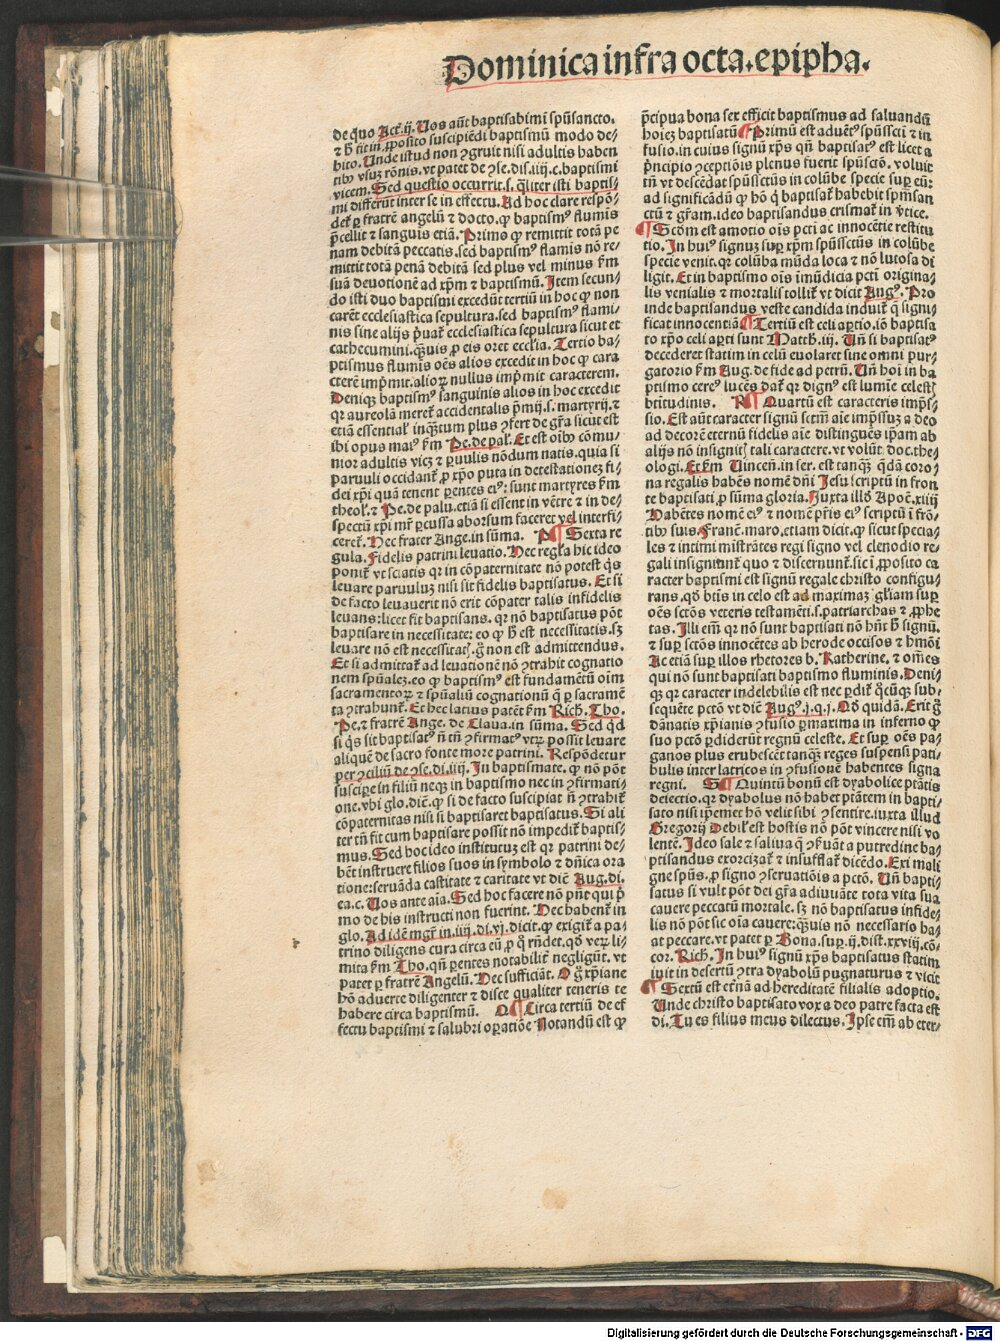 Dominica infra octa. epipha.
de quo Act. ij. Uos aūt baptisabimī spūsancto.
⁊ h̄ fit in ꝓposito suscipiēdi baptismū modo de⸗
bito. Unde istud non ꝯgruit nisi adultis haben
tibꝰ vsuꝫ rōnis. vt patet de ꝯse. dis. iiij. c. baptismi
vicem. Sed questio occurrit. s. q̄liter isti baptis⸗
mi differūt inter se in effectu. Ad hoc clare respō⸗
det̄ ꝑ fratrē angelū ⁊ docto. ꝙ baptismꝰ flumis
p̄cellit ⁊ sanguis etiā. Primo ꝙ remittit totā pe
nam debitā peccatis. sed baptismꝰ flamis nō re⸗
mittit totā penā debitā sed plus vel minus ẜm
suā deuotionē ad xp̄m ⁊ baptismū. Item secun⸗
do isti duo baptismi excedūt tertiū in hoc ꝙ non
carēt ecclesiastica sepultura. sed baptismꝰ flami⸗
nis sine alijs p̄uat̄ ecclesiastica sepultura sicut et
cathecumini. q̄uis ꝓ eis oret eccl̄ia. Tertio ba⸗
ptismus flumis oēs alios excedit in hoc ꝙ cara
cterē imp̄mit. alioꝝ nullus imp̄mit caracterem.
Denique baptismꝰ sanguinis alios in hoc excedit
qꝛ aureolā meret̄ accidentalis p̄mij. s. martyrij. ⁊
etiā essential̄ inq̄ꝫtum plus ꝯfert de gr̄a sicut est
ibi opus maiꝰ ẜm Pe. de pal. Et est oībꝰ cōmu⸗
nior adultis vicꝫ ⁊ ꝑuulis nōdum natis. quia si
paruuli occidant̄ ꝓ xp̄o puta in detestationeꝫ fi⸗
dei xp̄i quā tenent ꝑentes eiꝰ: sunt martyres ẜm
theol. ⁊ Pe. de palu. etiā si essent in vētre ⁊ in de⸗
spectū xp̄i mr̄ ꝑcussa aborsum faceret vel interfi⸗
ceret̄. Hec frater Ange. in sūma. P ¶ Sexta re
gula. Fidelis patrini leuatio. Hec regl̄a hic ideo
ponit̄ vt sciatis qꝛ in cōpaternitate nō potest q̄s
leuare paruuluꝫ nisi sit fidelis baptisatus. Et si
de facto leuauerit nō erit cōpater talis infidelis
leuans: licet fit baptisans. qꝛ nō baptisatus pōt
baptisare in necessitate: eo ꝙ h̄ est necessitatis. sꝫ
leuare nō est necessitat. g̊ non est admittendus.
Et si admittat̄ ad leuationē nō ꝯtrahit cognatio
nem spūaleꝫ. eo ꝙ baptismꝰ est fundamētū oīm
sacramentoꝝ ⁊ spūaliū cognationū q̄ ꝑ sacramē
ta ꝯtrahunt̄. Et hec latius patēt ẜm Rich. Tho.
Pe. ⁊ fratrē Ange. de Claua. in sūma. Sed qd
si q̄s sit baptisatꝰ n̄ tn̄ ꝯfirmatꝰ vtꝝ possit leuare
aliquē de sacro fonte more patrini. Respōdetur
per ꝯciliū de ꝯse. di. iiij. In baptismate. ꝙ nō pōt
suscipe in filiū neqꝫ in baptismo nec in ꝯfirmati⸗
one. vbi glo. diē. ꝙ si de facto suscipiat n̄ ꝯtrahit̄
cōpaternitas nisi si baptisaret baptisatus. Si ali
ter tn̄ fit cum baptisare possit nō impedit̄ baptis⸗
mus. Sed hoc ideo institutuꝫ est qꝛ patrini de⸗
bēt instruere filios suos in symbolo ⁊ dn̄ica ora
tione: seruāda castitate ⁊ caritate vt diē Aug. di.
ea. c. Uos ante aīa. Sed hoc facere nō pn̄t qui p̄
mo de his instructi non fuerint. Hec habent̄ in
glo. Ad idē mgr̄ in. iiij. di. vj. dicit. ꝙ exigit̄ a pa⸗
trino diligens cura circa eū ꝓ q̄ rn̄det. qd̄ veꝝ li⸗
mita ẜm Tho. qn̄ ꝑentes notabilit̄ negligūt. vt
patet ꝑ fratrē Angelū. Hec sufficiāt. O g̊ xp̄iane
hō aduerte diligenter ⁊ disce qualiter teneris te
habere circa baptismū. Q ¶ Circa tertiū de ef
fectu baptismi ⁊ salubri oꝑatiōe Notandū est ꝙ
p̄cipua bona sex efficit baptismus ad saluandū
hoieꝫ baptisatū ¶ Primū est aduētꝰ spūssctī ⁊ in
fusio. in cuius signū xp̄s qn̄ baptisatꝰ est licet a
p̄ncipio ꝯceptiōis plenus fuerit spūsctō. voluit
tn̄ vt descēdat spūssctūs in colūbe specie suꝑ eū:
ad significādū ꝙ hō q̄ baptisat̄ habebit spm̄san
ctū ⁊ gr̄am. ideo baptisandus crismat̄ in v̄tice.
¶ Scdm est amotio ois pcti ac innocētie restitu
tio. In huiꝰ signuꝫ suꝑ xp̄m spūssctūs in colūbe
specie venit. qꝛ colūba mūda loca ⁊ nō lutosa di
ligit. Et in baptismo ois imūdicia pctī origina⸗
lis venialis ⁊ mortalis tollit̄ vt dicit Augꝰ. Pro
inde baptisandus veste candida induit̄ q̄ signi⸗
ficat innocentiā ¶ Tertiū est celi aꝑtio. iō baptisa
to xp̄o celi aꝑti sunt Matth. iij. Un̄ si baptisatꝰ
decederet statim in celū euolaret sine omni pur⸗
gatorio ẜm Aug. de fide ad petrū. Un̄ hoī in ba
ptismo cereꝰ lucēs dat̄ qꝛ dignꝰ est lumīe celest̄
btītudinis. R ¶ Quartū est caracteris imp̄s⸗
sio. Est aūt caracter signū sctm̄ aīe imp̄ssuꝫ a deo
ad decorē eternū fidelis aīe distinguēs ip̄am ab
alijs nō insignit̄ tali caractere. vt volūt doc. the⸗
ologi. Et ẜm Uincen̄. in ser. est tanqꝫ q̄dā coro⸗
na regalis habēs nomē dn̄i Jesu scriptū in fron
te baptisati ꝓ sūma gloria. Juxta illd̄ Apoc̄. xiiij
Habētes nomē eiꝰ ⁊ nomē pr̄is eiꝰ scriptū ī frō⸗
tibꝰ suis. Franc̄. maro. etiam dicit. ꝙ sicut specia⸗
les ⁊ intimi mīstrātes regi signo vel clenodio re⸗
gali insigniunt̄ quo ⁊ discernunt̄. sic ī ꝓposito ca
racter baptismi est signū regale christo configu⸗
rans. qd̄ btīs in celo est ad maximaꝫ gl̄iam suꝑ
oēs sctōs veteris testamēti. s. patriarchas ⁊ ꝓphe
tas. Illi em̄ qꝛ nō sunt baptisati nō hn̄t h̄ signū.
⁊ suꝑ sctōs innocētes ab herode occisos ⁊ hmōi
Ac etiā suꝑ illos rhetores b. Katherine. ⁊ om̄es
qui nō sunt baptisati baptismo fluminis. Deni⸗
qꝫ qꝛ caracter indelebilis est nec ꝑdit̄ q̄cūqꝫ sub⸗
sequēte pctō vt diē Augꝰ. j. q. j. Qd̄ quidā. Erit g̊
dānatis xp̄ianis ꝯfusio ꝑmaxima in inferno ꝙ
suo pctō ꝑdiderūt regnū celeste. Et suꝑ oēs pa⸗
ganos plus erubescēt tanqꝫ reges suspensi pati
bulis inter latricos in ꝯfusionē habentes signa
regni. S ¶ Quintū bonū est dyabolice ptātis
deiectio. qꝛ dyabolus nō habet ptātem in bapti⸗
sato nisi ip̄emet hō velit sibi ꝯsentire. iuxta illud
Gregorij Debil̄ est hostis nō pōt vincere nisi vo
lentē. Ideo sale ⁊ saliua q̄ ꝯẜuāt a putredine ba⸗
ptisandus exorcizat̄ ⁊ insufflat̄ dicēdo. Exi mali
gne spūs. ꝓ signo ꝯseruatiōis a pctō. Un̄ bapti⸗
satus si vult pōt dei gr̄a adiuuāte tota vita sua
cauere peccatū mortale. sꝫ nō baptisatus infide⸗
lis nō pōt sic oīa cauere: q̄uis nō necessario ha⸗
at peccare. vt patet ꝑ Bona. suꝑ. ij. dist. xxviij. cō⸗
cor. Rich. In huiꝰ signū xp̄s baptisatus statim
iuit in desertū ꝯtra dyabolū pugnaturus ⁊ vicit
¶ Sextū est etn̄a ad hereditatē filialis adoptio.
Unde christo baptisato vox a deo patre facta est
di. Tu es filius meus dilectus. Ipse em̄ ab eter⸗
Digitalisierung gefördert durch die Deutsche Forschungsgemeinschaft - DFG